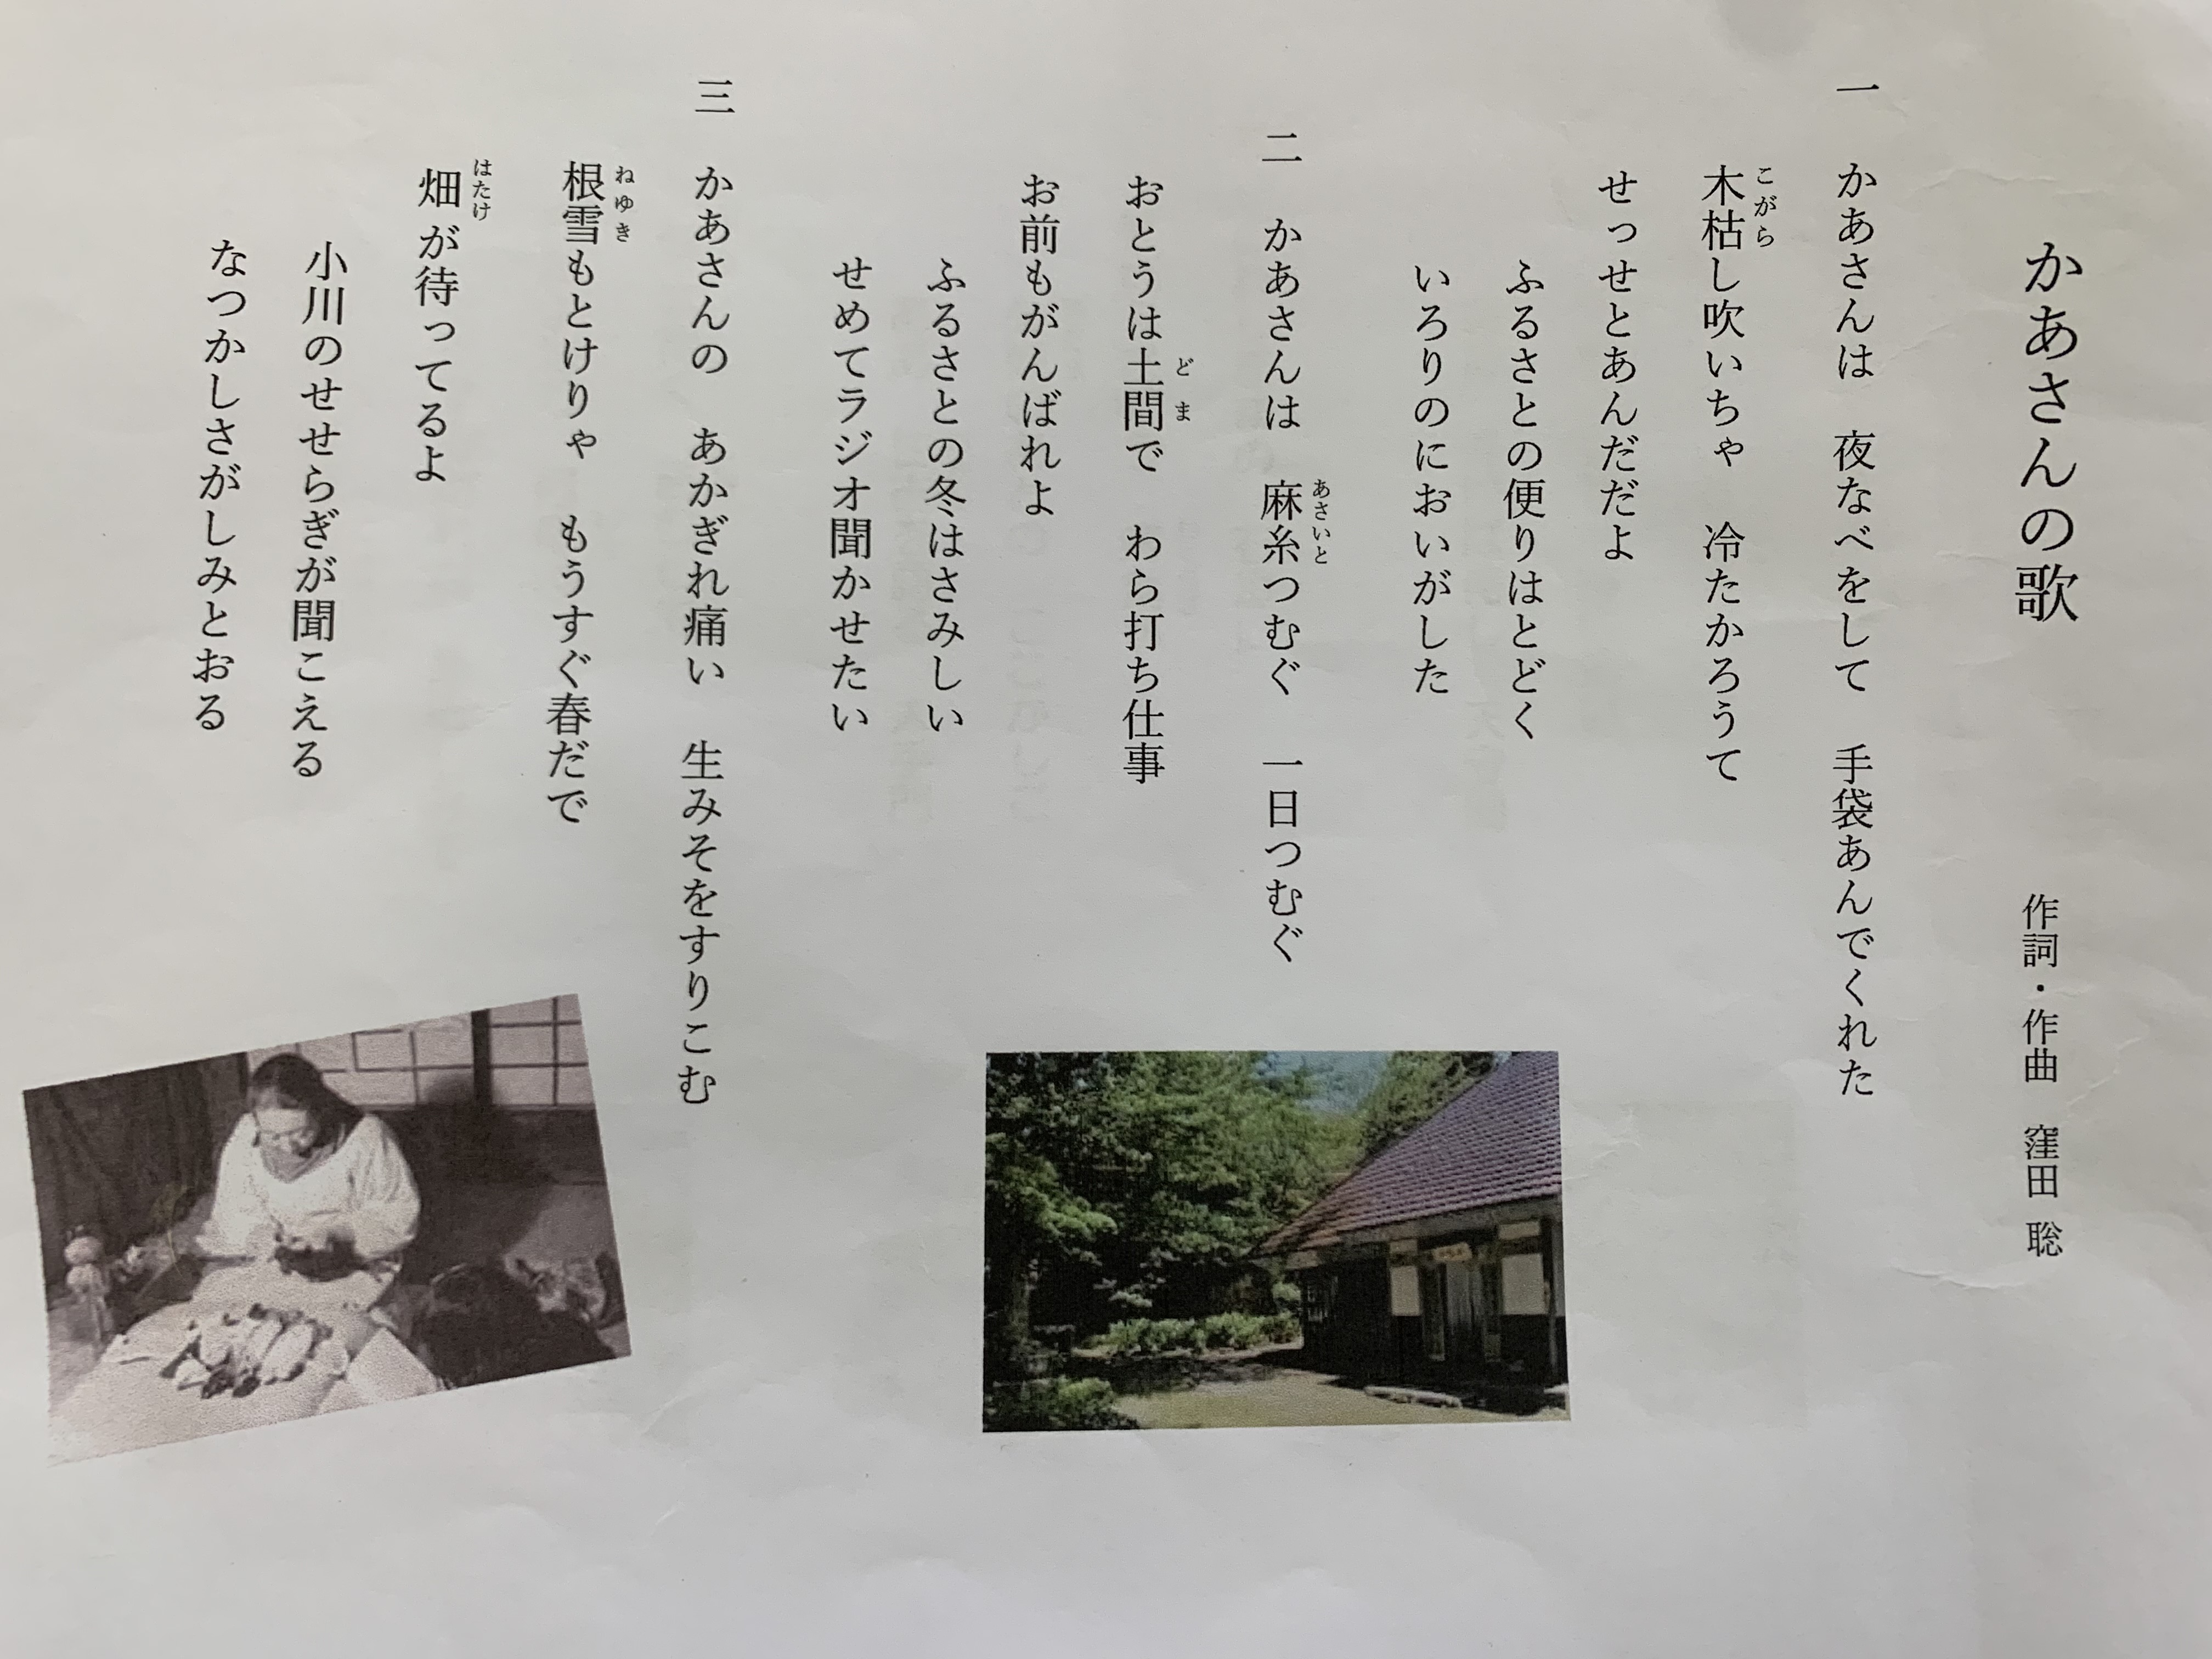 かあさんの歌
作詞・作曲　窪田 聡
一　かあさんは　夜なべをして　手袋あんでくれた
木枯し吹いちゃ　冷たかろうて
こがら
せっせとあんだだよ
ふるさとの便りはとどく
いろりのにおいがした
二　かあさんは　麻糸つむぐ　一日つむぐ
あさいと
おとうは土間で　わら打ち仕事
どま
お前もがんばれよ
ふるさとの冬はさみしい
せめてラジオ聞かせたい
三　かあさんの　あかぎれ痛い　生みそをすりこむ
根雪もとけりゃ　もうすぐ春だで
ねゆき
畑が待ってるよ
はたけ
小川のせせらぎが聞こえる
なつかしさがしみとおる